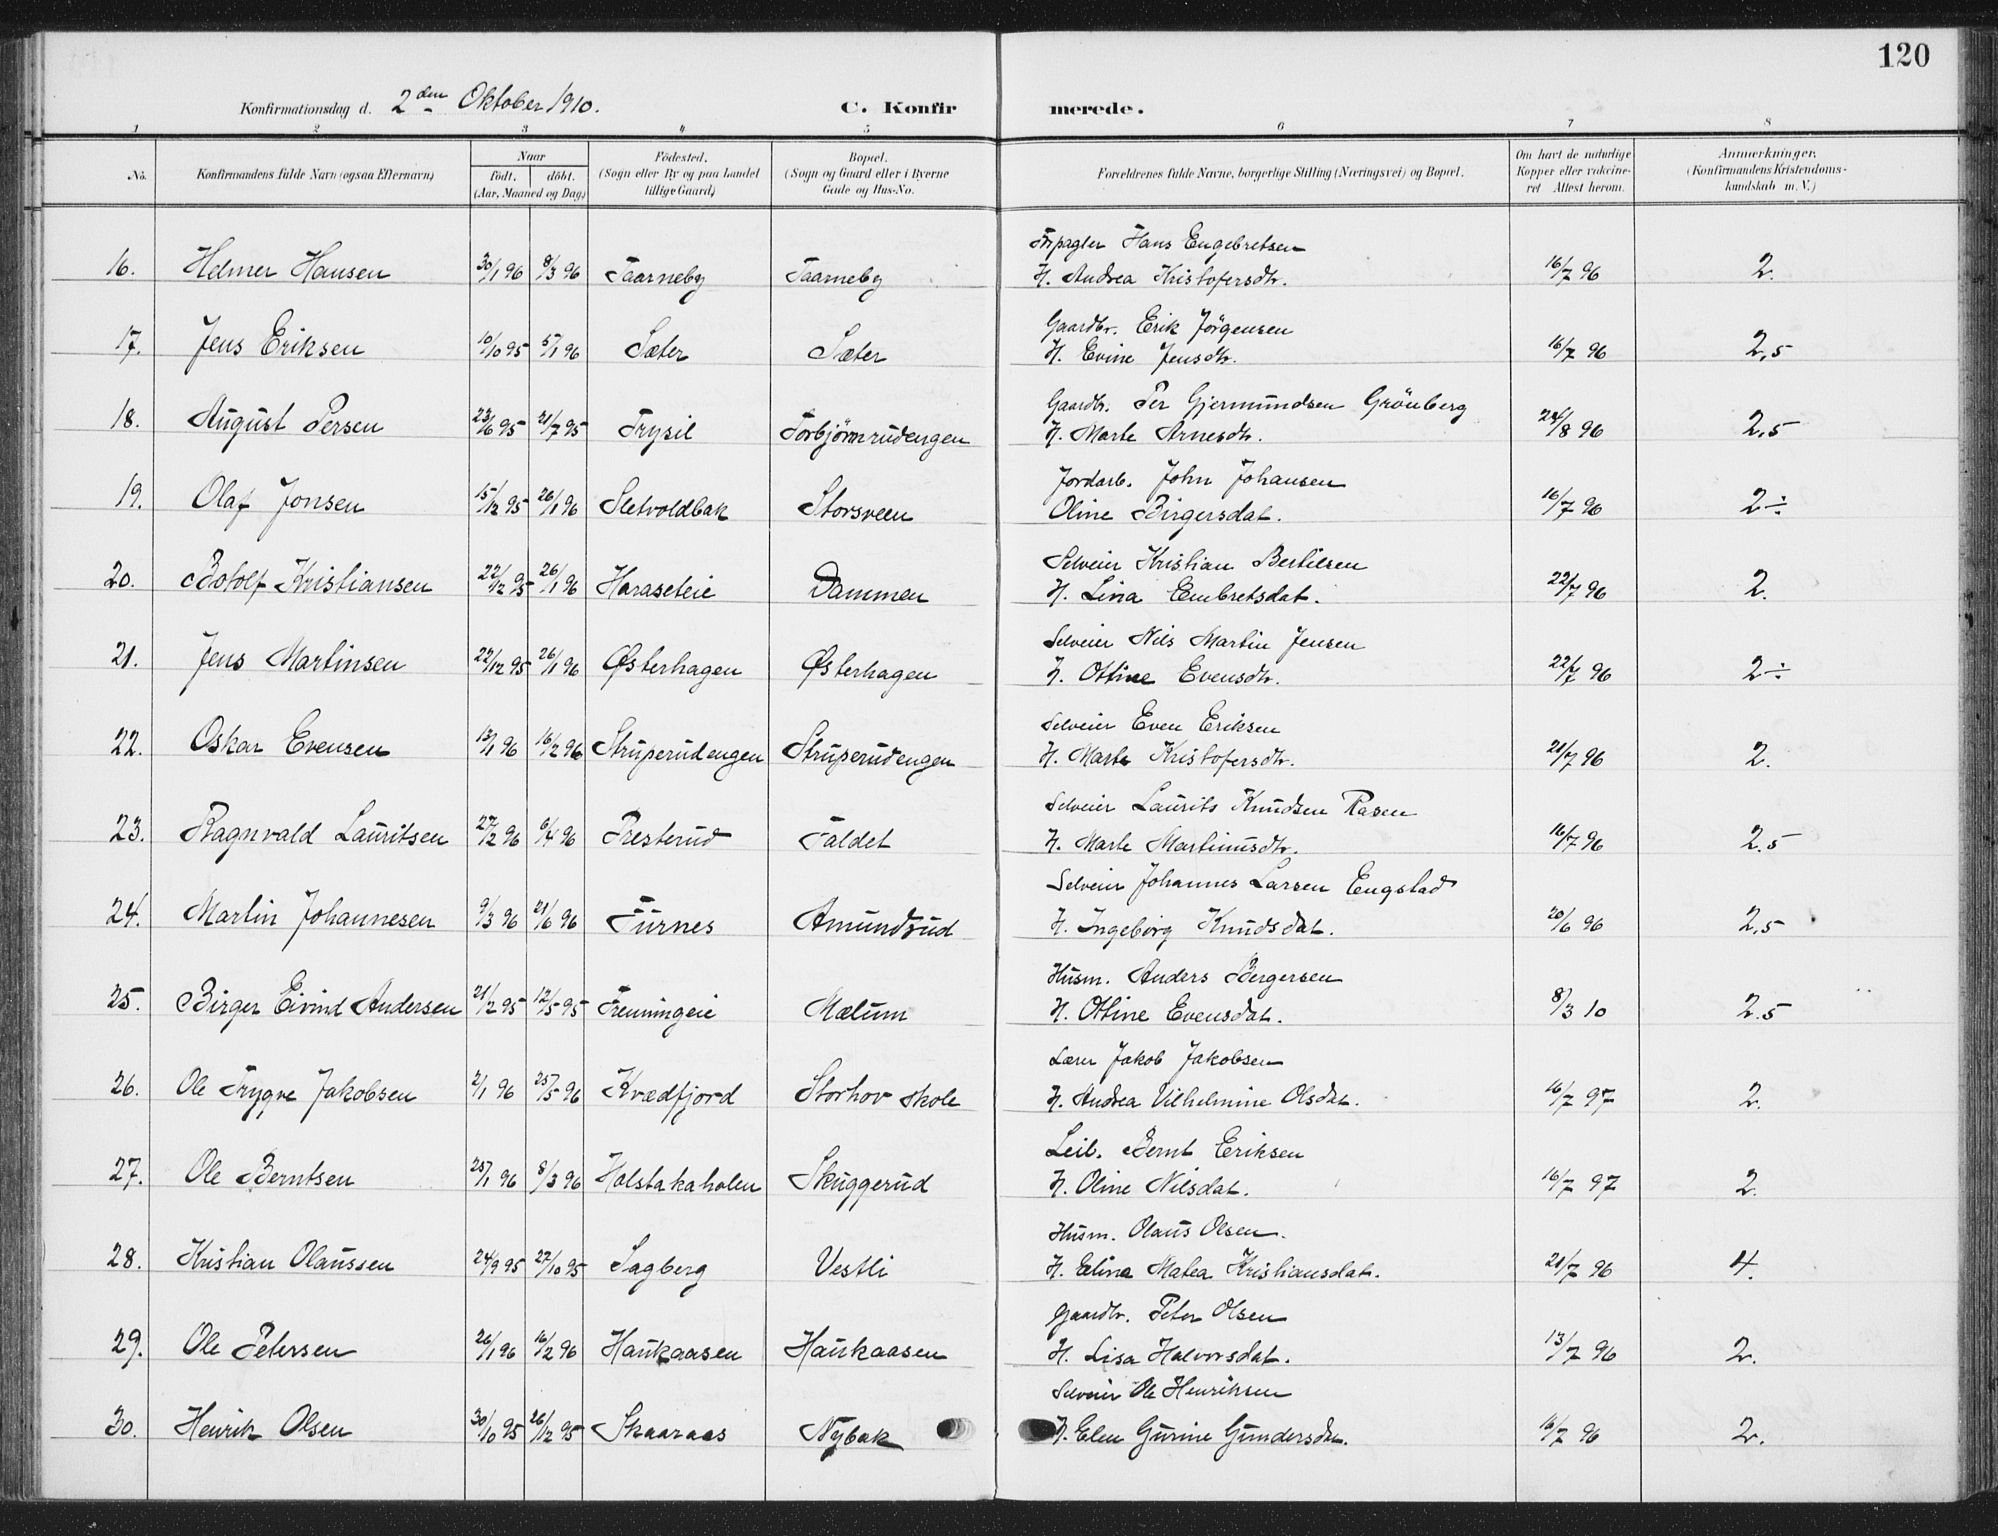 120
Konfirmationsdag d. 2den Oktober 1910. C. Konfirmerede.
1 2 3 4 5 6 7 8
No. Konfirmandens fulde Navn (ogsaa Efternavn) Naar födt. döbt. (Aar, Maaned og Dag) Födested. (Sogn eller By og paa Landet tillige Gaard) Bopæl. (Sogn og Gaard eller i Byerne Gade og Hus-No. Forældrenes fulde Navne, borgerlige Stilling (Næringsvei) og Bopæl. Om havt de naturlige Kopper eller vakcineret Attest herom. Anmærkninger. (Konfirmandens Kristendomskundskab m. V.)
Hans Engebretsen
16. Helmer Hansen 30/1 96 8/3 96 Taarneby Taarneby H. Andrea Kristofersdtr. 16/7 96 2.
Gaardbr. Erik Jørgensen
17. Jens Eriksen 10/10 95 5/1 96 Sæter Sæter H. Evine Jensdtr. 16/7 96 2,5
Gaardbr. Per Gjermundsen Grönberg
18. August Persen 23/6 95 21/7 95 Trysil Torbjörnrudengen H. Marte Arnesdtr. 24/8 96 2,5
Jordarb. John Johansen
19. Olaf Jonsen 15/12 95 26/1 96 Sletvoldbak Storsveen Oline Birgersdat. 16/7 96 2÷
Selveier Kristian Bertilsen
20. Botolf Kristiansen 22/12 95 26/1 96 Haraseteie Dammen H. Lina Embretsdat. 22/7 96 2.
Selveier Nils Martin Jensen
21. Jens Martinsen 22/12 95 26/1 96 Østerhagen Østerhagen H. Ottine Evensdtr. 22/7 96 2÷
Selveier Even Eriksen
22. Oskar Evensen 13/1 96 16/2 96 Struperudengen Struperudengen H. Marte Kristofersdtr. 21/7 96 2.
Selveier Laurits Knudsen Rasen
23. Ragnvald Lauritsen 27/2 96 6/4 96 Presterud Faldet H. Marte Martinusdtr. 16/7 96 2.5
Selveier Johannes Larsen Engstad
24. Martin Johannesen 9/3 96 21/6 96 Furnes Amundrud H. Ingeborg Knudsdat. 20/6 96 2,5
Husm. Anders Bergersen
25. Birger Eivind Andersen 21/2 95 12/5 95 Trenningeie Mælum H. Ottine Evensdat. 8/3 10 2.5
Lærer Jakob Jakobsen
26. Ole Trygve Jakobsen 2/1 96 25/5 96 Kvædfjord Storhov skole H. Andrea Vilhelmine Olsdat. 16/7 97 2.
Leil. Bernt Eriksen
27. Ole Berntsen 25/1 96 8/3 96 Holstakaholen Skuggerud H. Oline Nilsdat. 16/7 97 2.
Husm. Olaus Olsen.
28. Kristian Olaussen 24/9 95 27/10 95 Sagberg Vestli H. Elina Matea Kristiansdat. 21/7 96 4.
Gaardbr. Peter Olsen
29. Ole Petersen 26/1 96 16/2 96 Haukaasen Haukaasen H. Lisa Halvorsdat. 13/7 96 2.
Selveier Ole Henriksen
30. Henrik Olsen 30/10 95 26/12 95 Skaaraas Nybak H. Elen Gurine Gundersdat. 16/7 96 2.